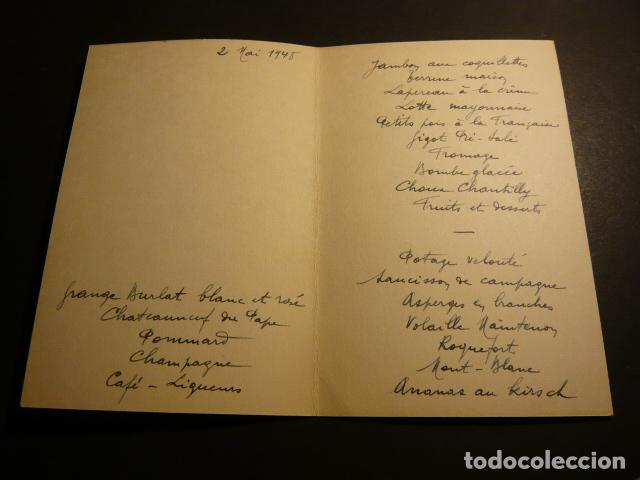 2 Mai 1948
Grange Burlat blanc et rosé
Chateauneuf du Pape
Pommard
Champagne
Café - Liqueurs
Jambon aux coquillettes
Terrine maison
Lapereau à la crème
Lotte mayonnaise
Petits pois à la Française
Gigot Pré-salé
Fromage
Bombe glacée
Choux Chantilly
Fruits et desserts
Potage velouté
Saucisson de campagne
Asperges en branches
Volaille Maintenon
Roquefort
Mont-Blanc
Ananas au kirsch
todocoleccion